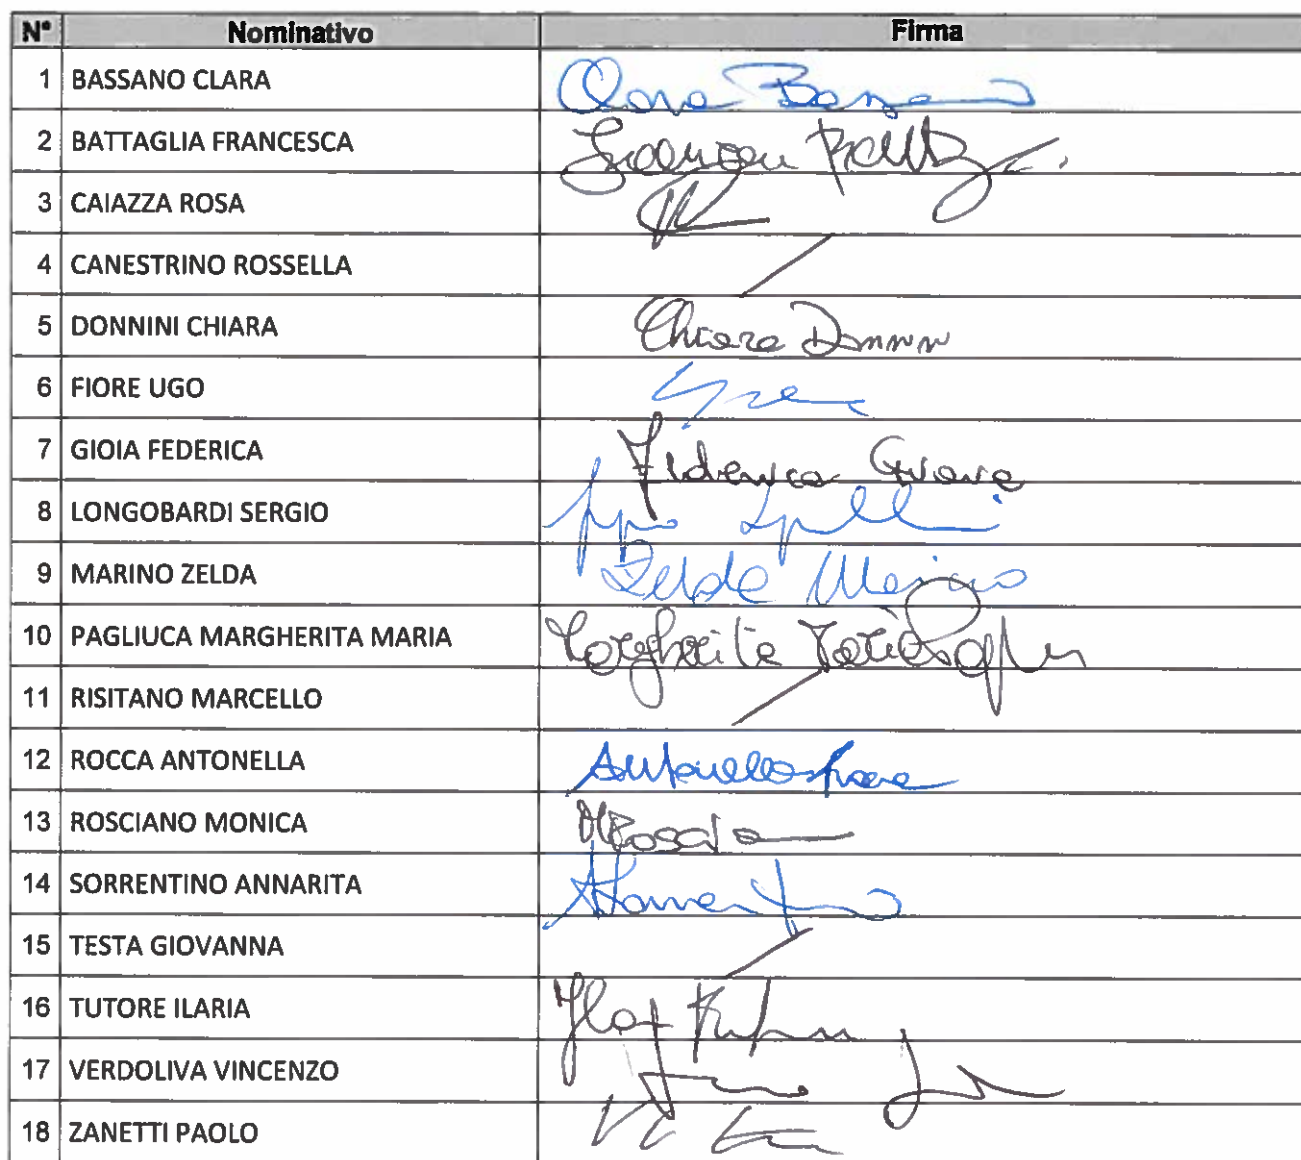 N° Nominativo Firma
1 BASSANO CLARA Clara Bassano
2 BATTAGLIA FRANCESCA Francesca
3 CAIAZZA ROSA
4 CANESTRINO ROSSELLA
5 DONNINI CHIARA Chiara Donnini
6 FIORE UGO
7 GIOIA FEDERICA Federica Gioia
8 LONGOBARDI SERGIO
9 MARINO ZELDA Zelda Marino
10 PAGLIUCA MARGHERITA MARIA Margherita Maria
11 RISITANO MARCELLO
12 ROCCA ANTONELLA Antonella Rocca
13 ROSCIANO MONICA
14 SORRENTINO ANNARITA
15 TESTA GIOVANNA
16 TUTORE ILARIA
17 VERDOLIVA VINCENZO
18 ZANETTI PAOLO